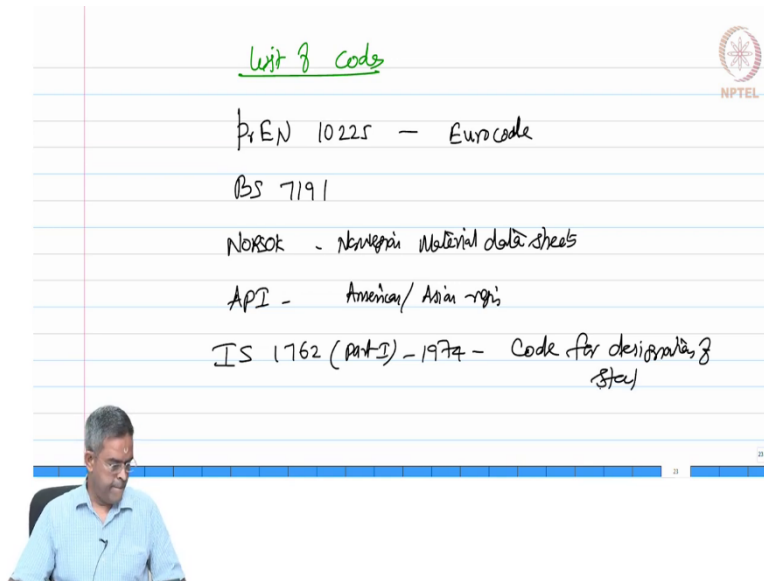 List of Codes
NPTEL
PrEN 10225 - Eurocode
BS 7191
NORSOK - Norwegian Material data sheets
API - American/ Asian region
IS 1762 (Part I) - 1974 - Code for designation of
Steel
23
21